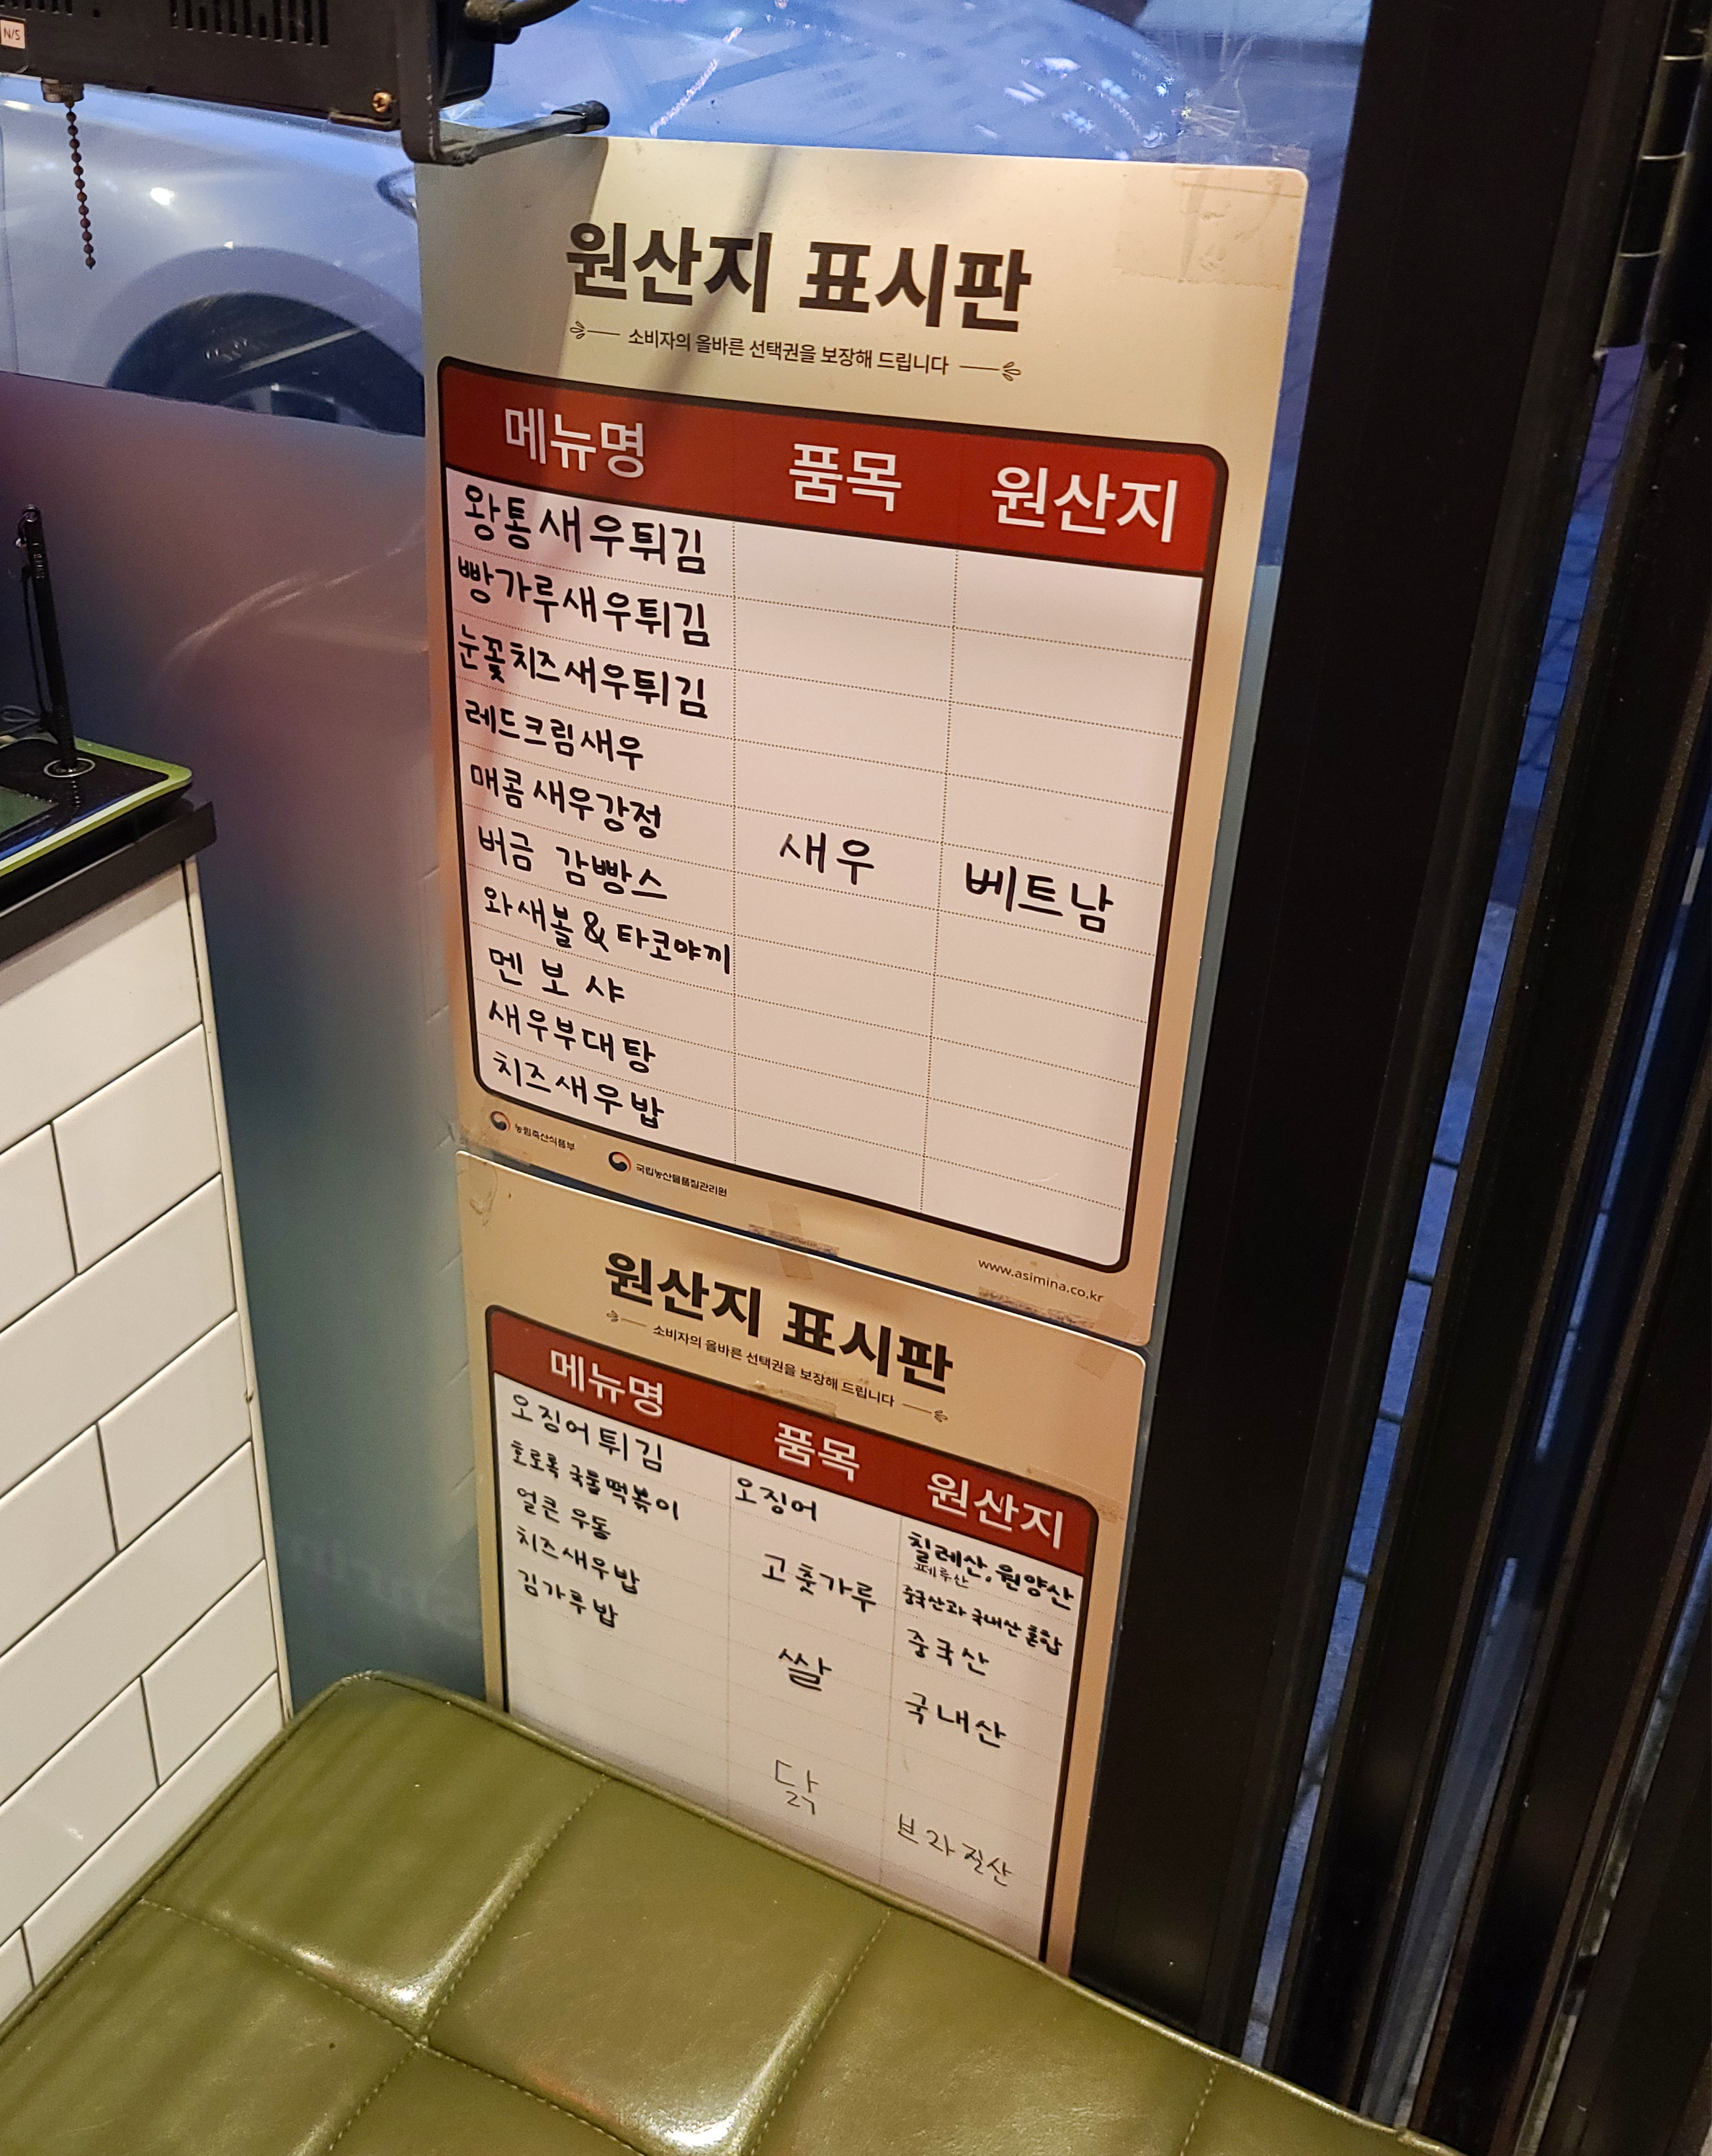 N/S
원산지 표시판
소비자의 올바른 선택권을 보장해 드립니다
메뉴명 품목 원산지
왕통새우튀김
빵가루새우튀김
눈꽃치즈새우튀김
레드크림새우
매콤새우강정
버금 감빵스
새우 베트남
와새볼 & 타코야끼
멘보샤
새우부대탕
치즈새우밥
농림축산식품부 국립농산물품질관리원
www.asimina.co.kr
원산지 표시판
소비자의 올바른 선택권을 보장해 드립니다
메뉴명 품목 원산지
오징어튀김 오징어 칠레산, 원양산
페루산
호로록 국물떡볶이 고춧가루 중국산과 국내산 혼합
얼큰 우동 중국산
치즈새우밥 쌀 국내산
김가루밥
닭 브라질산